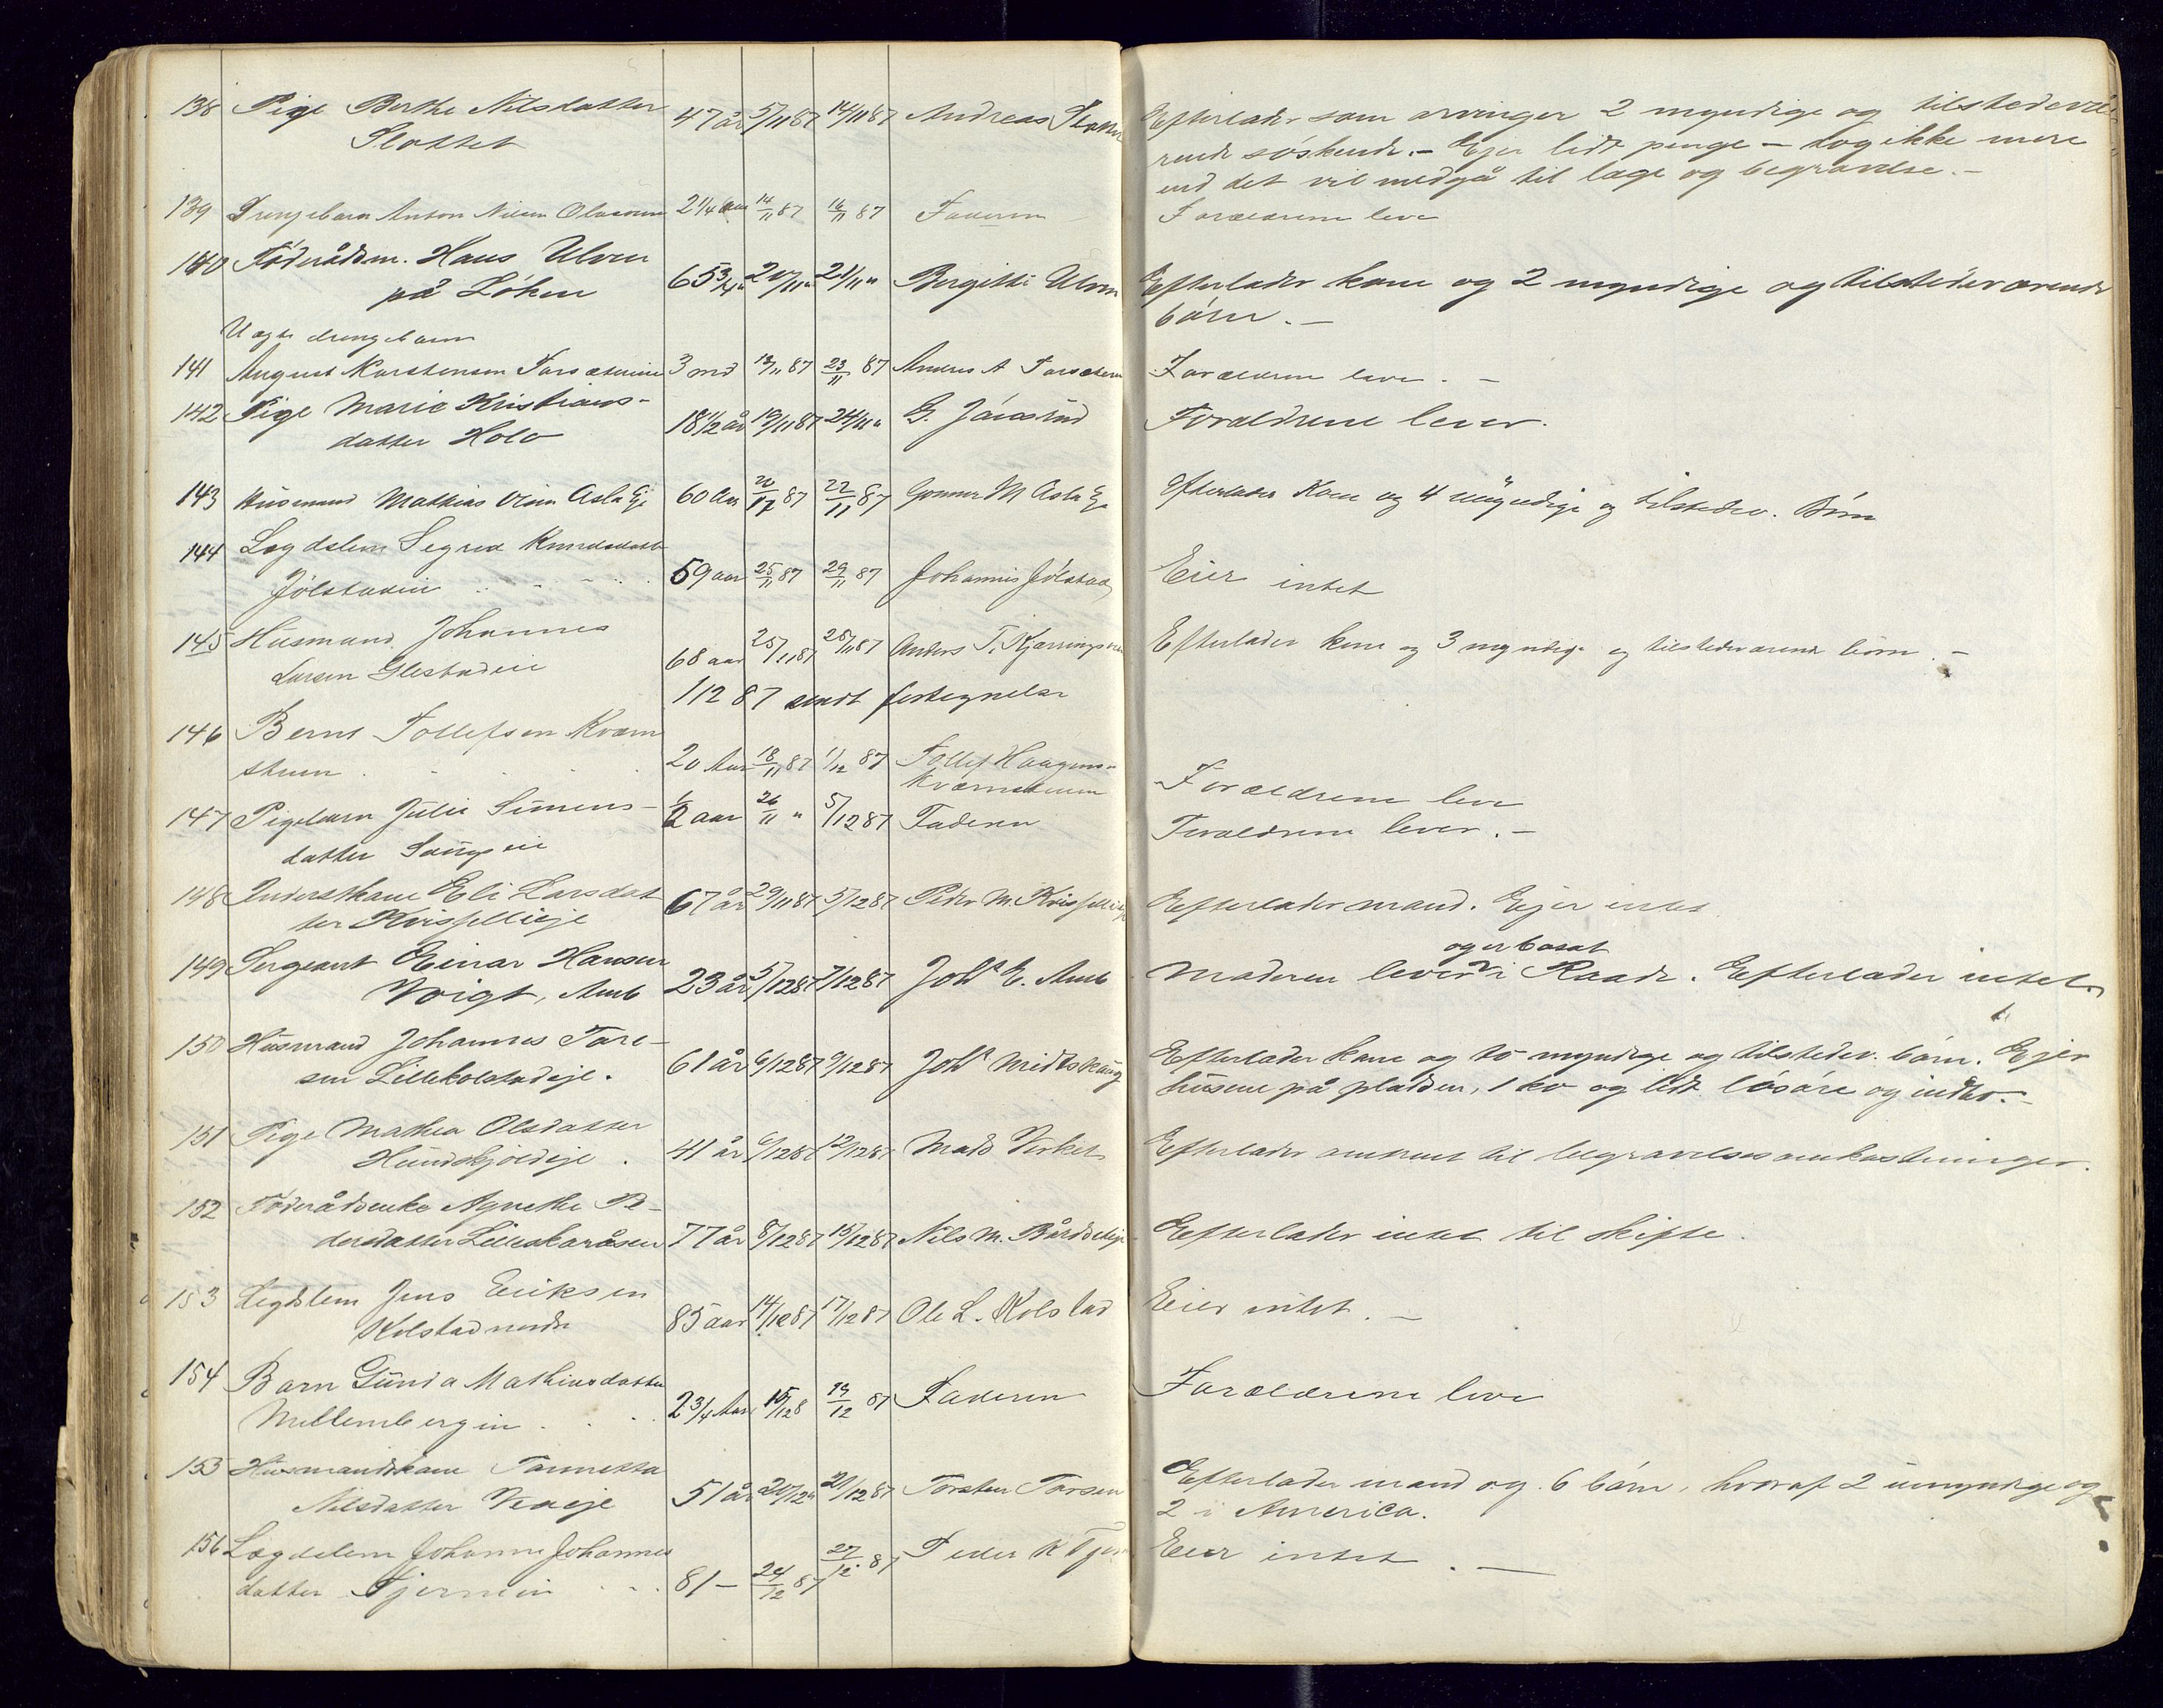 138 Pige Berthe Nilsdatter
Slottet 47 år 5/11 87 14/11 87 Andreas Slottet Efterlader som arvinger 2 myndige og tilstedevæ-
rende søskende. - Ejer lidt penge - dog ikke mere
end det vil medgå til læge og begravelse. -
139 Drengebarn Anton Nilsen Olsen 2 1/4 aar 14/11 87 16/11 87 Faderen Forældrene leve
140 Føderådsm. Hans Ulven
på Løken 65 3/4 " 20/11 " 21/11 " Bergitte Ulven Efterlader kone og 2 myndige og tilstedeværende
børn. -
Uægte drengebarn
141 August Karstensen 3 md 19/11 87 23/11 87 Anders A Forældrene lever. -
142 Pige Marie Kristians-
datter Holo 18 1/2 år 19/11 87 24/11 " G. Jønsrud Forældrene lever.
143 Husmand Mathias Olsen Asla Eje 60 Aar 20/11 87 22/11 87 Gunnar M Asla Eje Efterlader Kone og 4 myndige og tilstedev. Børn
144 Lægdslem Segred Knudsdatter
Jølstadeie 59 aar 25/11 87 29/11 87 Johannes Jølstad Eier intet
145 Husmand Johannes
Larsen Glestadeie 68 aar 25/11 87 28/11 87 Anders T. Efterlader kone og 3 myndige og tilstedeværende børn. -
1 12 87 sendt fortegnelse
146 Bernt Tollefsen Kværn
stuen 20 Aar 18/11 87 1/12 87 Tollef Haagens.
Kværnstuen Forældrene leve
147 Pigebarn Julie Simens-
datter eie 1/2 aar 26/11 " 5/12 87 Faderen Forældrene lever. -
148 Inderstkone Eli Larsdat
ter Kvisfelleje 67 år 29/11 87 5/12 87 Peder M. Kvisfelleje Efterlader mand. Ejer intet
149 Sergeant Einar Hansen
Voigt, Amb 23 år 5/12 87 7/12 87 Johs E. Amb og er bosat
Moderen lever i Raade. Efterlader intet
150 Husmand Johannes Tore-
sen Lillekolstadeje. 61 år 6/12 87 9/12 87 Johs Midtskoug Efterlader kone og 10 myndige og tilstedev. børn. Ejer
husene på pladsen, 1 ko og lidt løsøre og indbo. -
151 Pige Mathea Olsdatter
Hundskjoldeje. 41 år 6/12 87 12/12 87 Mads Virket Efterlader omtrent til begravelsesomkostninger.
152 Føderådsenke Agnethe Pe-
dersdatter Lilleskaråsen 77 år 8/12 87 15/12 87 Nils M. Bårdseleje Efterlader intet til skifte.
153 Legdslem Jens Eriksen
Kolstad nordre 85 aar 14/12 87 17/12 87 Ole L. Kolstad Eier intet. -
154 Barn Gunda Mathiasdatter
Mellembergin 2 3/4 Aar 15/12 8 19/12 87 Faderen Forældrene leve
155 Husmandskone Tonnetta
Nilsdatter 51 år 20/12 " 21/12 87 Torsten Torsen Efterlader mand og 6 børn, hvoraf 2 umyndige og
2 i America.
156 Lægdslem Johanne Johannes
datter Tjerneie 81 - 24/12 87 27/12 87 Peder K Eier intet. -